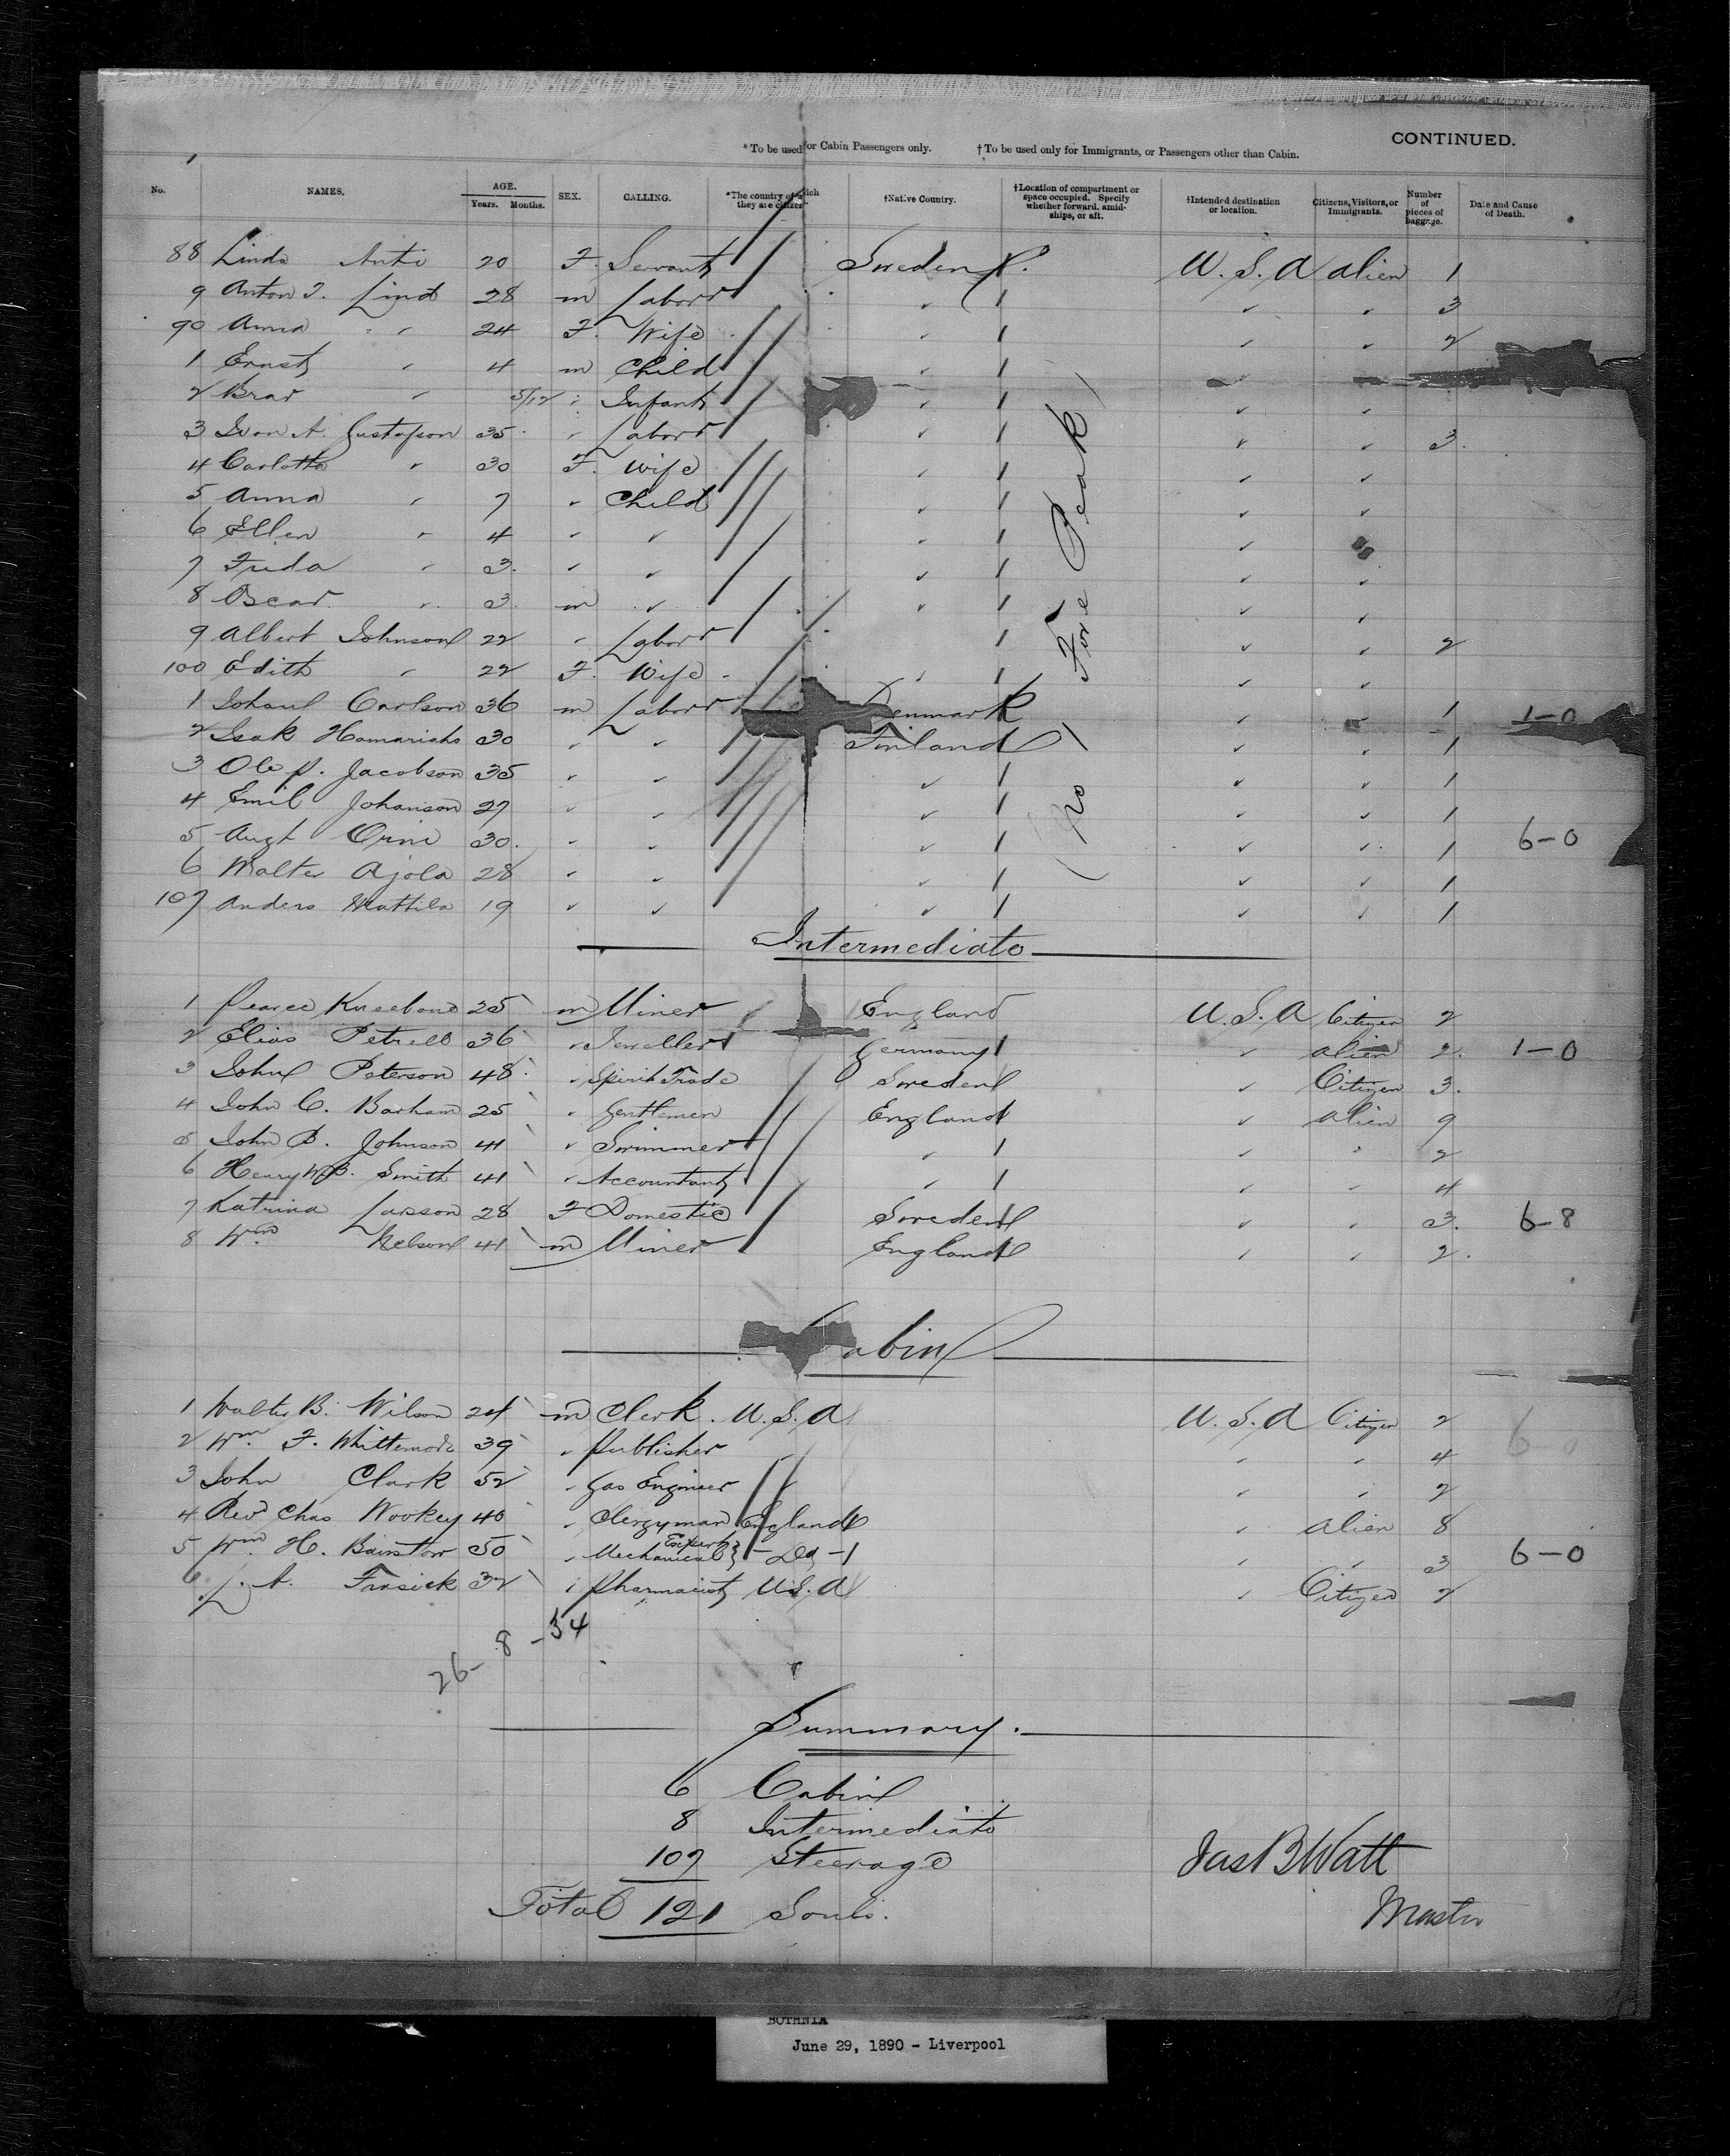 CONTINUED.
* To be used for Cabin Passengers only. † To be used only for Immigrants, or Passengers other than Cabin.
No. NAMES. AGE. Years. Months. SEX. CALLING. *The country of which they are citizens †Native Country. †Location of compartment or space occupied. Specify whether forward, amidships, or aft. †Intended destination or location. Citizens, Visitors, or Immigrants. Number of pieces of baggage. Date and Cause of Death.
88 Linda Anti 20 F. Servant Sweden U.S.A alien 1
9 Anton J. Lind 28 m Laborr 3
90 Anna " 24 F. Wife 2
1 Ernst " 4 m Child
2 Brar " 5/12 " Infant
3 Ivan A. Gustafson 35 " Laborr 3.
4 Carlotta " 30 F. Wife
5 Anna " 7 " Child
6 Ellen " 4 " "
7 Frida " 3. " "
8 Oscar " 3. m "
9 Albert Johnson 22 " Laborr 2
100 Edith " 22 F. Wife
1 Johan Carlson 36 m Laborr Denmark 1 1-0
2 Isak 30 " " Finland 1
3 Ole P. Jacobson 35 " " " 1
4 Emil Johanson 27 " " " 1
5 Augt 30. " " " 1 6-0
6 Walter Ajola 28 " " " 1
107 Anders Mattila 19 " " " 1
(No 1 Fore Peak)
Intermediate
1 Pearce 25 m Miner England U.S.A Citizen 2
2 Elias Petrell 36 " Jeweller Germany " alien 2. 1-0
3 John Peterson 48 " Spirit Trade Sweden " Citizen 3.
4 John C. Barham 25 " Gentlemen England " alien 9
5 John B. Johnson 41 " Swimmer " " " 2
6 Henry W.B. Smith 41 " Accountant " " " 4
7 Katrina Larsson 28 F Domestic Sweden " " 3. 6-8
8 Wm Nelson 41 m Miner England " " 2.
Cabin
1 Walter B. Wilson 24 m Clerk. U.S.A U.S.A Citizen 2 6
2 Wm F. Whittemore 39 " Publisher " " 4
3 John Clark 52 " Gas Engineer " " 2
4 Revd Chas Wookey 40 " Clergyman England " alien 8
5 Wm H. Bairstow 50 " Mechanical Expert - Do - " " 3 6-0
6 J. A. 32 " Pharmacist U.S.A " Citizen 2
26-8-34
Summary.
6 Cabin
8 Intermediate
107 Steerage
Total 121 Souls.
Jas B Watt
Master
BOTHNIA
June 29, 1890 - Liverpool